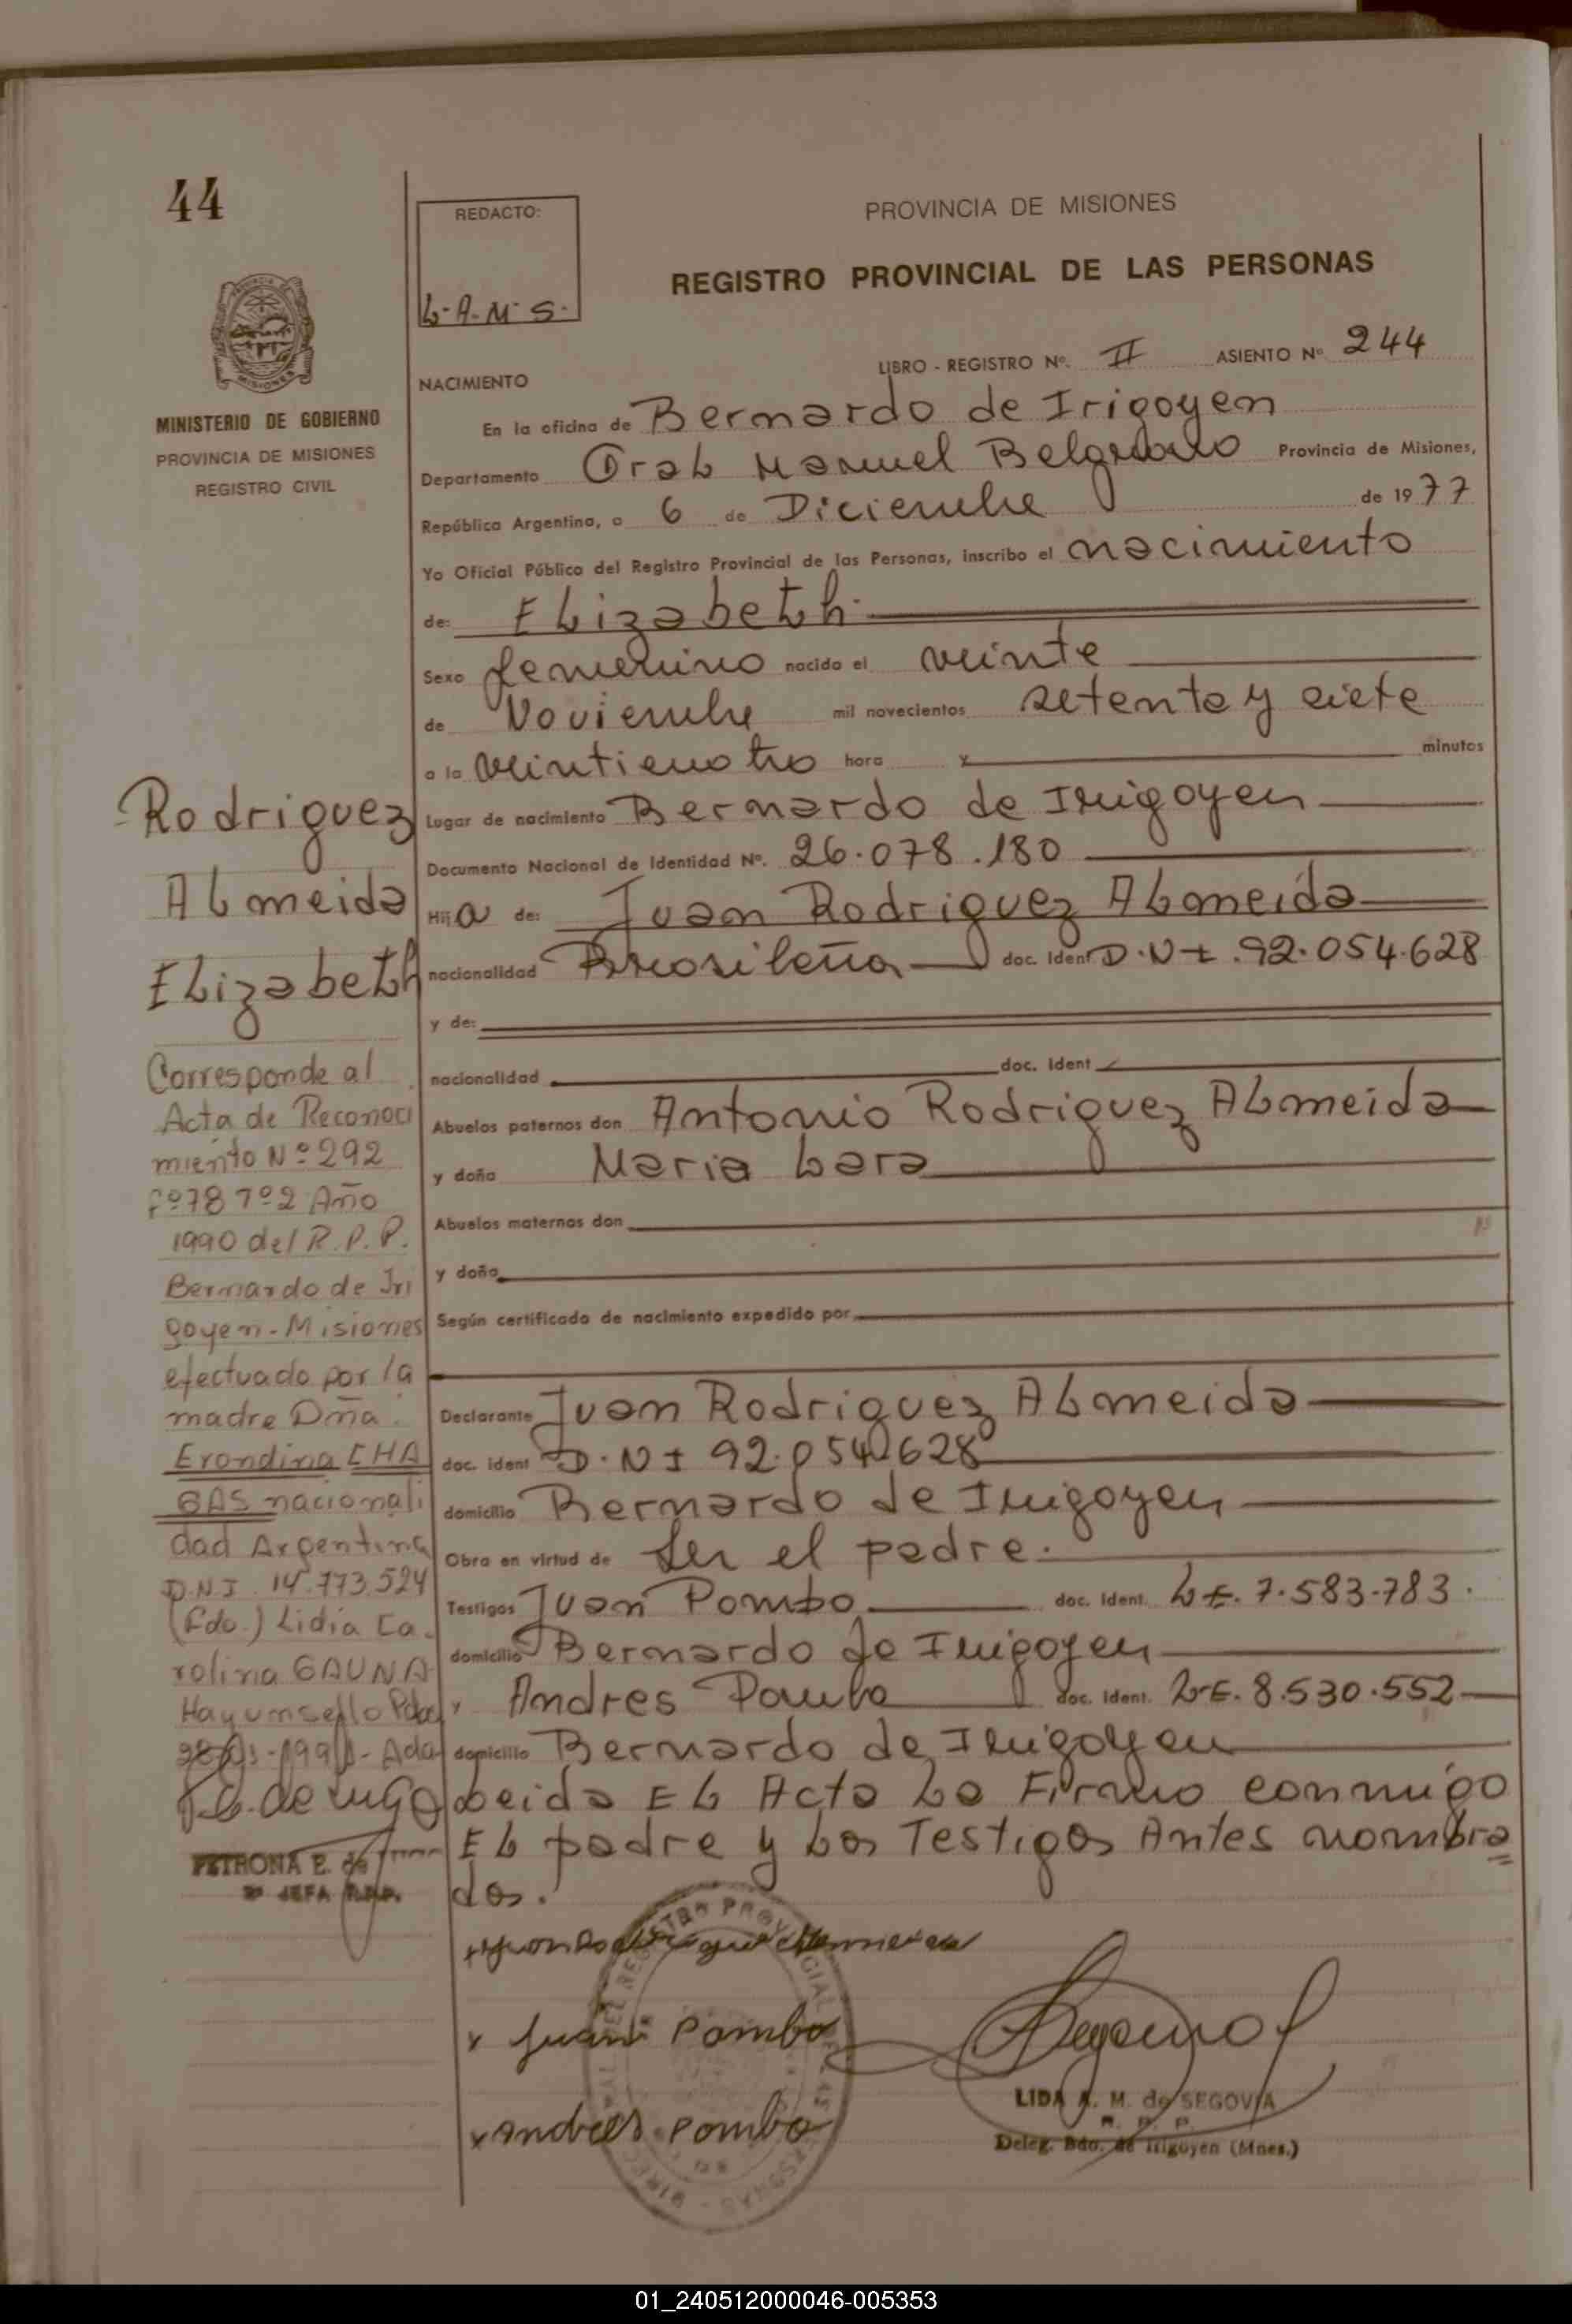 44
REDACTO:
L-A-M-S-
PROVINCIA DE MISIONES
REGISTRO PROVINCIAL DE LAS PERSONAS
LIBRO - REGISTRO Nº. II ASIENTO Nº 244
NACIMIENTO
MISIONES
MINISTERIO DE GOBIERNO
PROVINCIA DE MISIONES
REGISTRO CIVIL
En la oficina de Bernardo de Irigoyen
Departamento Gral Manuel Belgrano Provincia de Misiones,
República Argentina, a 6 de Diciembre de 1977
Yo Oficial Público del Registro Provincial de las Personas, inscribo el nacimiento
de: Elizabeth
Sexo femenino nacido el veinte
de Noviembre mil novecientos setenta y siete
a la veinticuatro hora y minutos
Lugar de nacimiento Bernardo de Irigoyen
Documento Nacional de Identidad Nº. 26.078.180
Hija de: Juan Rodriguez Almeida
nacionalidad Brasileña doc. Ident D.N.I. 92.054.628
y de:
nacionalidad doc. Ident
Abuelos paternos don Antonio Rodriguez Almeida
y doña Maria Lara
Abuelos maternos don
y doña
Según certificado de nacimiento expedido por
Declarante Juan Rodriguez Almeida
doc. ident D.N.I 92.054.628
domicilio Bernardo de Irigoyen
Obra en virtud de Ser el padre.
Testigos Juan Pombo doc. Ident. L.E. 7.583.783.
domicilio Bernardo de Irigoyen
y Andres Pombo doc. Ident. L.E. 8.530.552
domicilio Bernardo de Irigoyen
Leida El Acta La Firmo conmigo
El padre y Los Testigos Antes nombra
dos.
Rodriguez
Almeida
Elizabeth
Corresponde al
Acta de Reconoci
miento Nº 292
Fº78 Tº2 Año
1990 del R.P.P.
Bernardo de Iri
goyen-Misiones
efectuado por la
madre Dña.
Erondina CHA
GAS nacionali
dad Argentina
D.N.I. 14.773.524
(Fdo.) Lidia Ca
rolina GAUNA
Hay un sello
PETRONA E. de
2ª JEFA R.P.P.
x Juan Rodriguez Almeida
x Juan Pombo
x Andres Pombo
LIDA A. M. de SEGOVIA
R. P. P.
Deleg. Bdo. de Irigoyen (Mnes.)
01_240512000046-005353